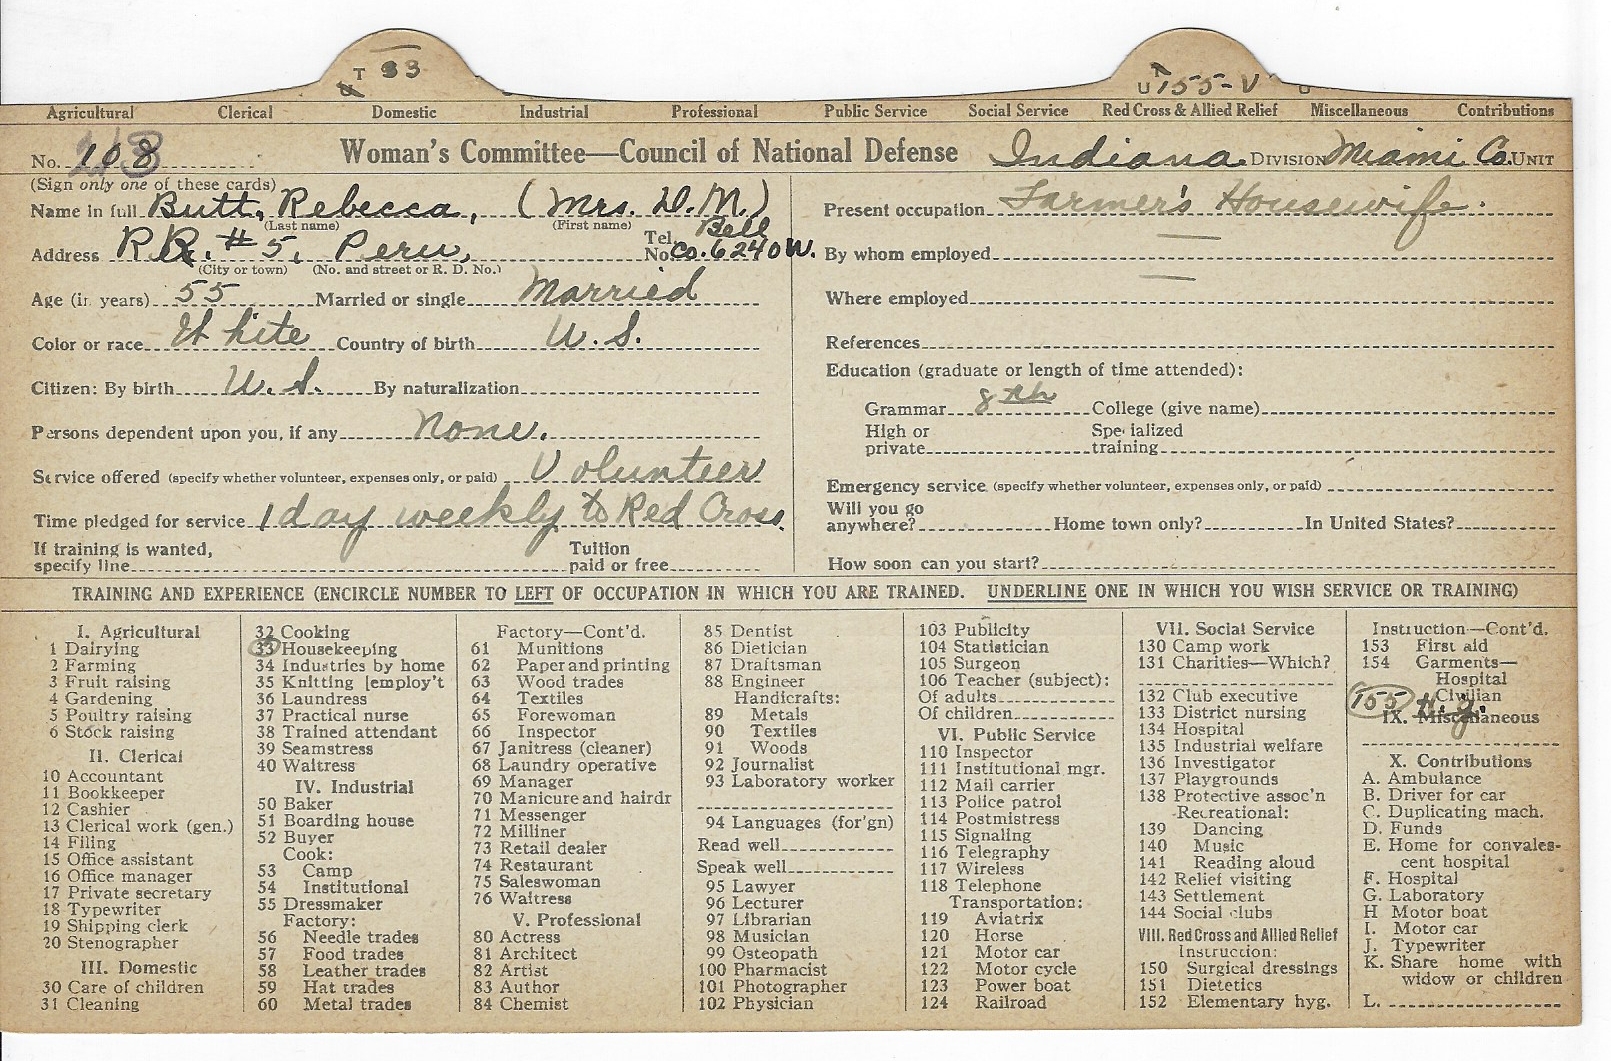 T 33
U 155-V
Agricultural Clerical Domestic Industrial Professional Public Service Social Service Red Cross & Allied Relief Miscellaneous Contributions
No. 108 Woman's Committee—Council of National Defense Indiana Division Miami Co. Unit
(Sign only one of these cards)
Name in full Butt, Rebecca, (Mrs. D. M.)
(Last name) (First name)
Address R.R. #5, Peru, Tel. No. Bell Co. 6240W.
(City or town) (No. and street or R. D. No.)
Age (in years) 55 Married or single Married
Color or race White Country of birth U.S.
Citizen: By birth U.S. By naturalization
Persons dependent upon you, if any None.
Service offered (specify whether volunteer, expenses only, or paid) Volunteer
Time pledged for service 1 day weekly to Red Cross.
If training is wanted, specify line Tuition paid or free
Present occupation Farmer's Housewife.
By whom employed —
Where employed —
References
Education (graduate or length of time attended):
Grammar 8th College (give name)
High or private Specialized training
Emergency service (specify whether volunteer, expenses only, or paid)
Will you go anywhere? Home town only? In United States?
How soon can you start?
TRAINING AND EXPERIENCE (ENCIRCLE NUMBER TO LEFT OF OCCUPATION IN WHICH YOU ARE TRAINED. UNDERLINE ONE IN WHICH YOU WISH SERVICE OR TRAINING)
I. Agricultural
1 Dairying
2 Farming
3 Fruit raising
4 Gardening
5 Poultry raising
6 Stock raising
II. Clerical
10 Accountant
11 Bookkeeper
12 Cashier
13 Clerical work (gen.)
14 Filing
15 Office assistant
16 Office manager
17 Private secretary
18 Typewriter
19 Shipping clerk
20 Stenographer
III. Domestic
30 Care of children
31 Cleaning
32 Cooking
33 Housekeeping
34 Industries by home
35 Knitting [employ't
36 Laundress
37 Practical nurse
38 Trained attendant
39 Seamstress
40 Waitress
IV. Industrial
50 Baker
51 Boarding house
52 Buyer
Cook:
53 Camp
54 Institutional
55 Dressmaker
Factory:
56 Needle trades
57 Food trades
58 Leather trades
59 Hat trades
60 Metal trades
Factory—Cont'd.
61 Munitions
62 Paper and printing
63 Wood trades
64 Textiles
65 Forewoman
66 Inspector
67 Janitress (cleaner)
68 Laundry operative
69 Manager
70 Manicure and hairdr
71 Messenger
72 Milliner
73 Retail dealer
74 Restaurant
75 Saleswoman
76 Waitress
V. Professional
80 Actress
81 Architect
82 Artist
83 Author
84 Chemist
85 Dentist
86 Dietician
87 Draftsman
88 Engineer
Handicrafts:
89 Metals
90 Textiles
91 Woods
92 Journalist
93 Laboratory worker
94 Languages (for'gn)
Read well
Speak well
95 Lawyer
96 Lecturer
97 Librarian
98 Musician
99 Osteopath
100 Pharmacist
101 Photographer
102 Physician
103 Publicity
104 Statistician
105 Surgeon
106 Teacher (subject):
Of adults
Of children
VI. Public Service
110 Inspector
111 Institutional mgr.
112 Mail carrier
113 Police patrol
114 Postmistress
115 Signaling
116 Telegraphy
117 Wireless
118 Telephone
Transportation:
119 Aviatrix
120 Horse
121 Motor car
122 Motor cycle
123 Power boat
124 Railroad
VII. Social Service
130 Camp work
131 Charities—Which?
132 Club executive
133 District nursing
134 Hospital
135 Industrial welfare
136 Investigator
137 Playgrounds
138 Protective assoc'n
Recreational:
139 Dancing
140 Music
141 Reading aloud
142 Relief visiting
143 Settlement
144 Social clubs
VIII. Red Cross and Allied Relief
Instruction:
150 Surgical dressings
151 Dietetics
152 Elementary hyg.
Instruction—Cont'd.
153 First aid
154 Garments—
Hospital
Civilian
155
IX. Miscellaneous
X. Contributions
A. Ambulance
B. Driver for car
C. Duplicating mach.
D. Funds
E. Home for convales-
cent hospital
F. Hospital
G. Laboratory
H Motor boat
I. Motor car
J. Typewriter
K. Share home with
widow or children
L.